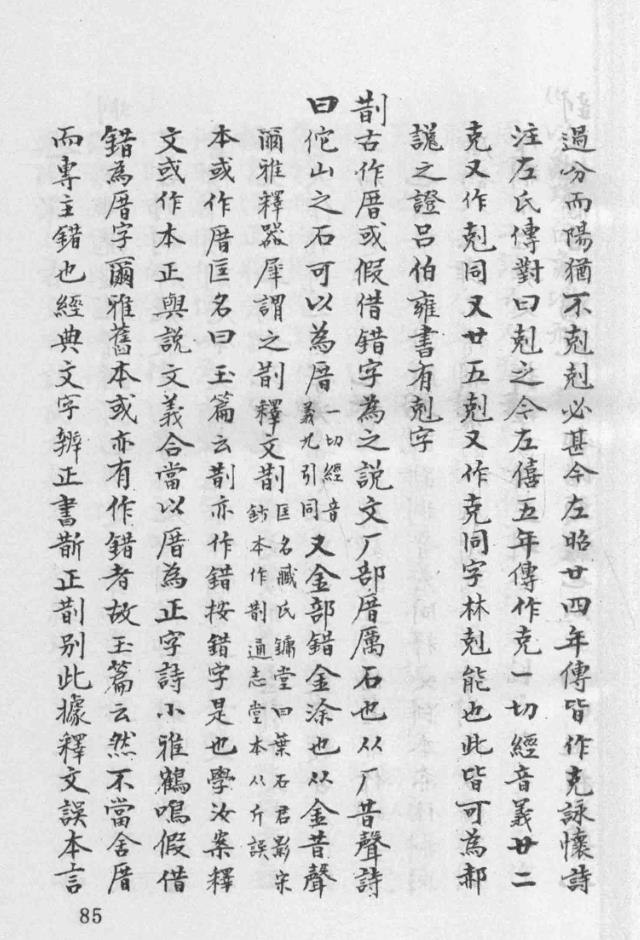 過分而陽猶不剋剋必甚今左昭廿四年傳皆作克詠懷詩
注左氏傳對曰剋之今左僖五年傳作克一切經音義廿二
克又作剋同又廿五剋又作克同字林剋能也此皆可為郝
說之證呂伯雍書有剋字
剒古作厝或假借錯字為之說文厂部厝厲石也从厂昔聲詩
曰佗山之石可以為厝一切經音義九引同又金部錯金涂也从金昔聲
爾雅釋器犀謂之剒釋文剒匡名臧氏鏞堂曰葉石君影宋鈔本作剒通志堂本从斤誤
本或作厝匡名曰玉篇云剒亦作錯按錯字是也學汝案釋
文或作本正與說文義合當以厝為正字詩小雅鶴鳴假借
錯為厝字爾雅舊本或亦有作錯者故玉篇云然不當舍厝
而專主錯也經典文字辨正書斮正剒別此據釋文誤本言
85